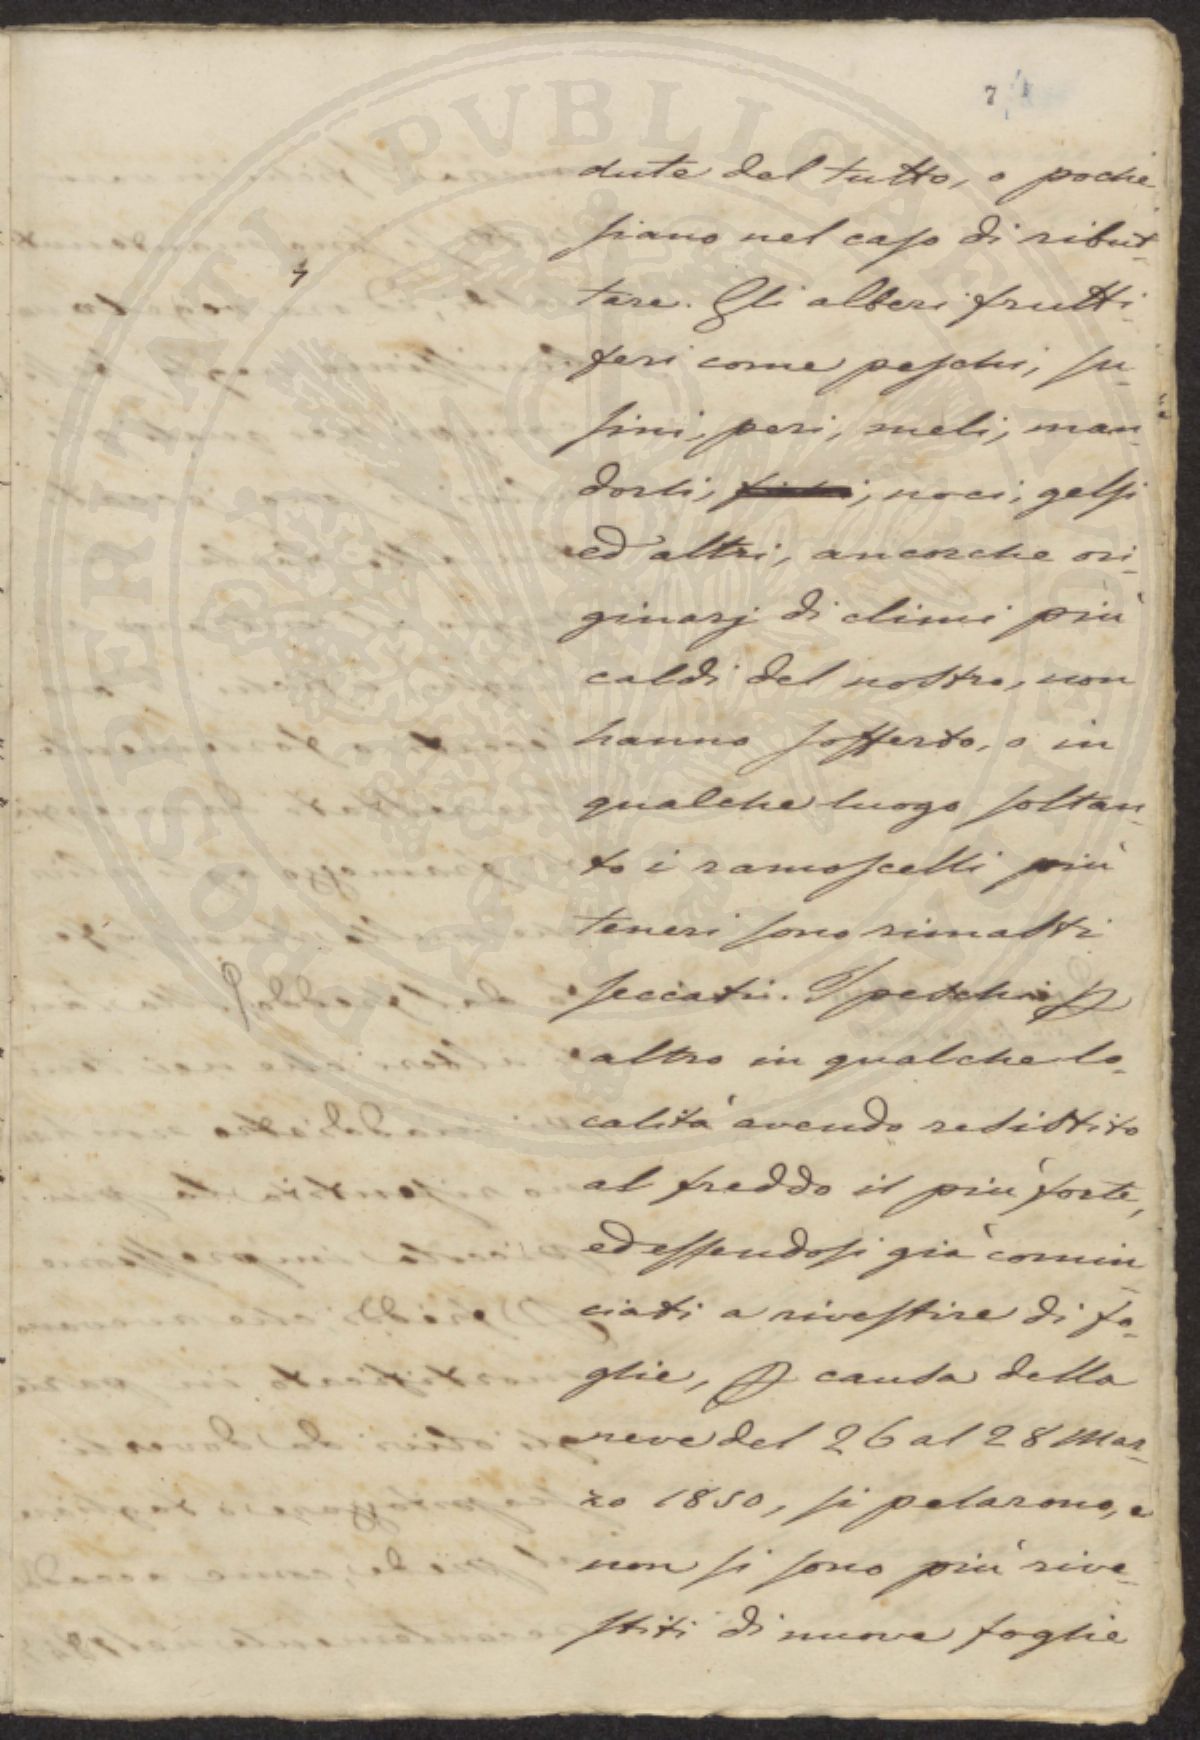 7
dute del tutto, o poche
siano nel caso di ribut-
tare. Gli alberi frutti-
feri come peschi, su-
sini, peri, meli, man-
dorli, noci, gelsi
ed altri, ancorche ori-
ginarj di climi più
caldi del nostro, non
hanno sofferto, o in
qualche luogo soltan-
to i ramoscelli più
teneri sono rimasti
seccati. I peschi
altro in qualche lo-
calità avendo resistito
al freddo il più forte,
ed essendosi già comin-
ciati a rivestire di fo-
glie, causa della
neve del 26 al 28 Mar-
zo 1850, si pelarono, e
non si sono più rive-
stiti di nuove foglie
PROSPERITATI PVBLICAE